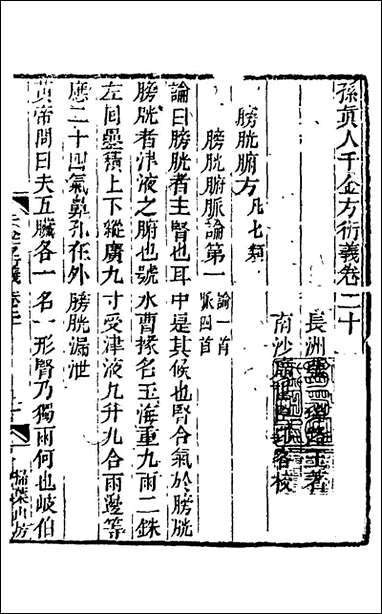 孫真人千金方衍義卷二十
長洲張璐路玉著
南沙席世臣郢客校
膀胱腑方凡七類
膀胱腑脈論第一論一首脈四首
論曰膀胱者主腎也耳中是其候也腎合氣於膀胱
膀胱者津液之腑也號水曹掾名玉海重九兩二銖
左回疊積上下縱廣九寸受津液九升九合兩邊等
應二十四氣鼻孔在外膀胱漏泄
黃帝問曰夫五臟各一名一形腎乃獨兩何也岐伯
掃葉山房